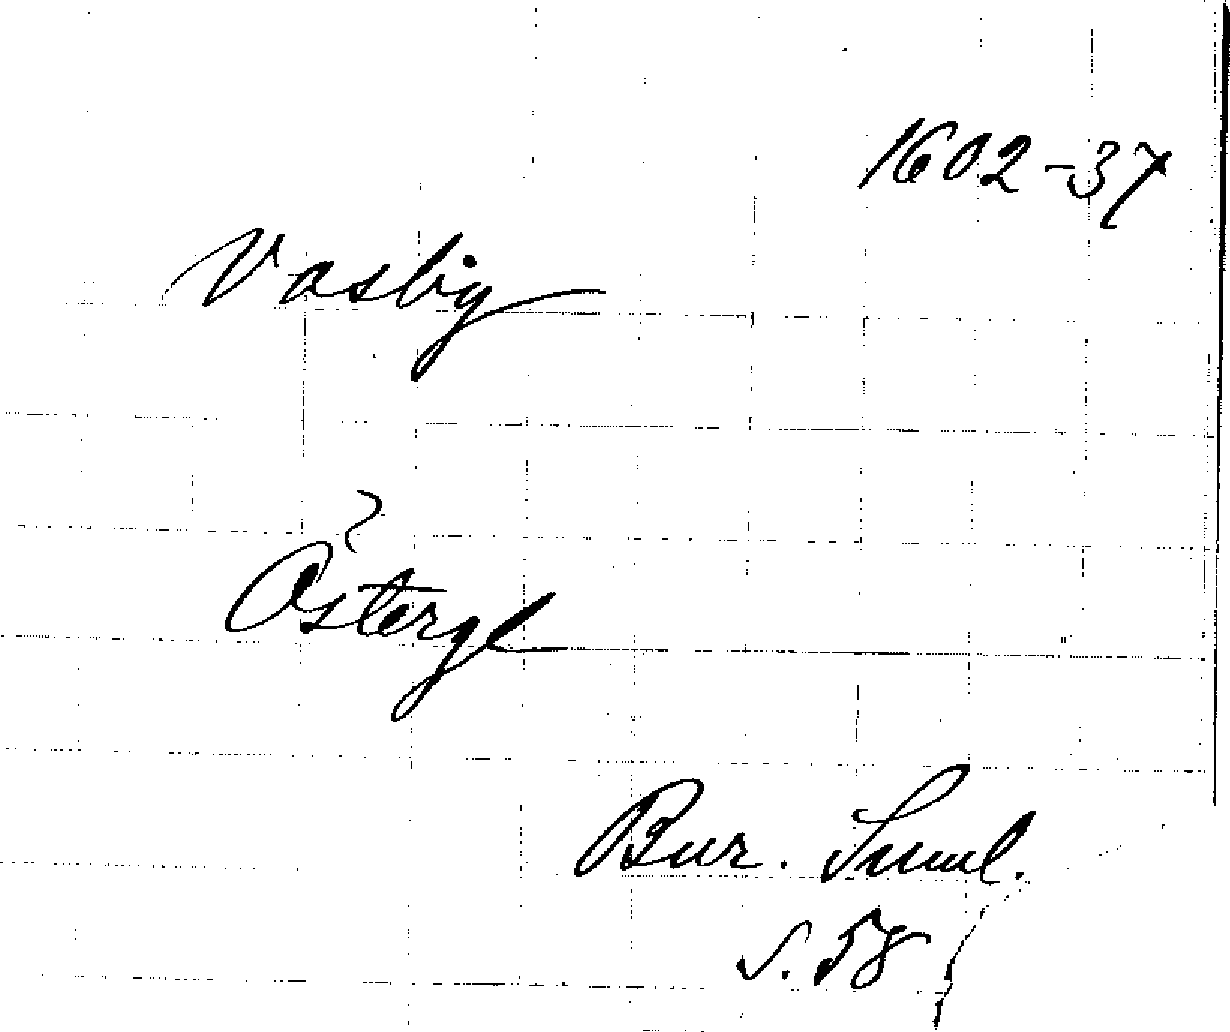 1602-37
Vasby
Östergl
Bur. Saml.
s. 58